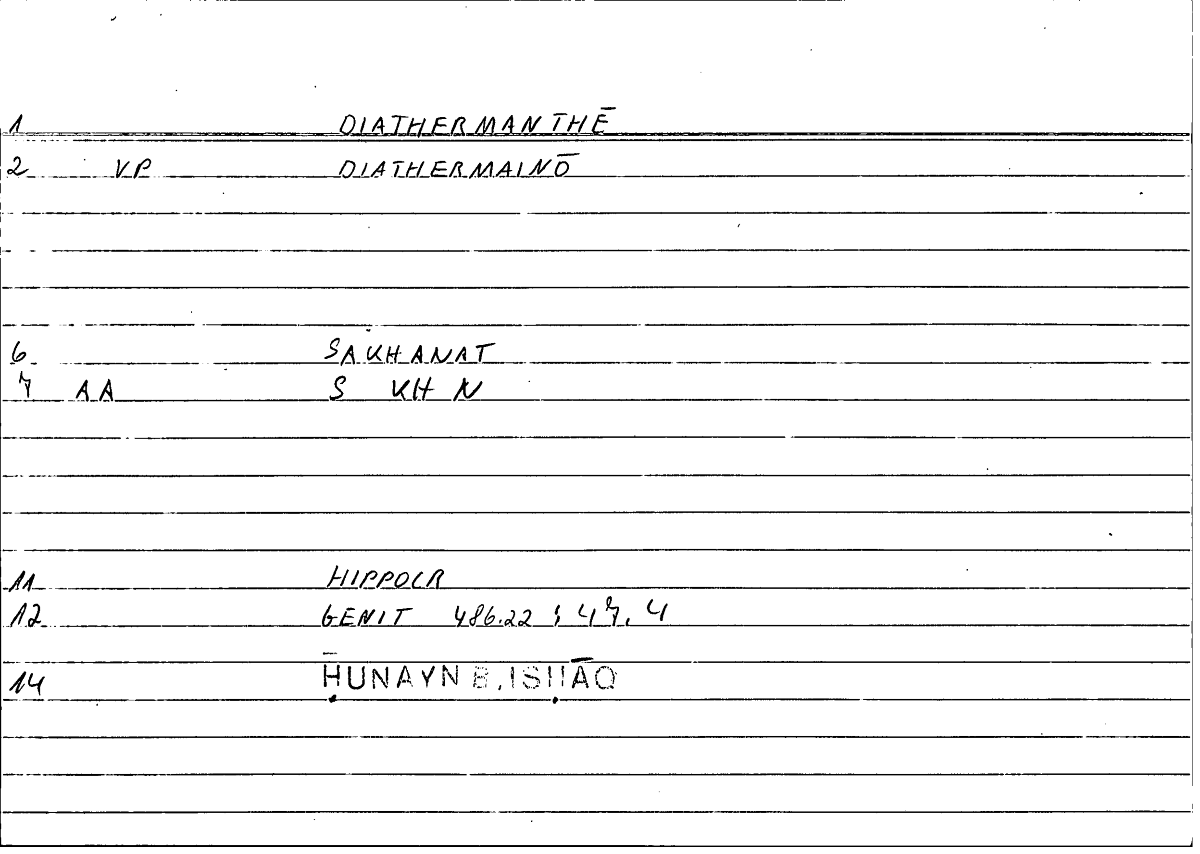 1 DIATHERMANTHĒ
2 VP DIATHERMAINŌ
6 SAKHANAT
7 AA S KH N
11 HIPPOCR
12 GENIT 486.22 ; 47.4
14 ḤUNAYN B. ISḤĀQ